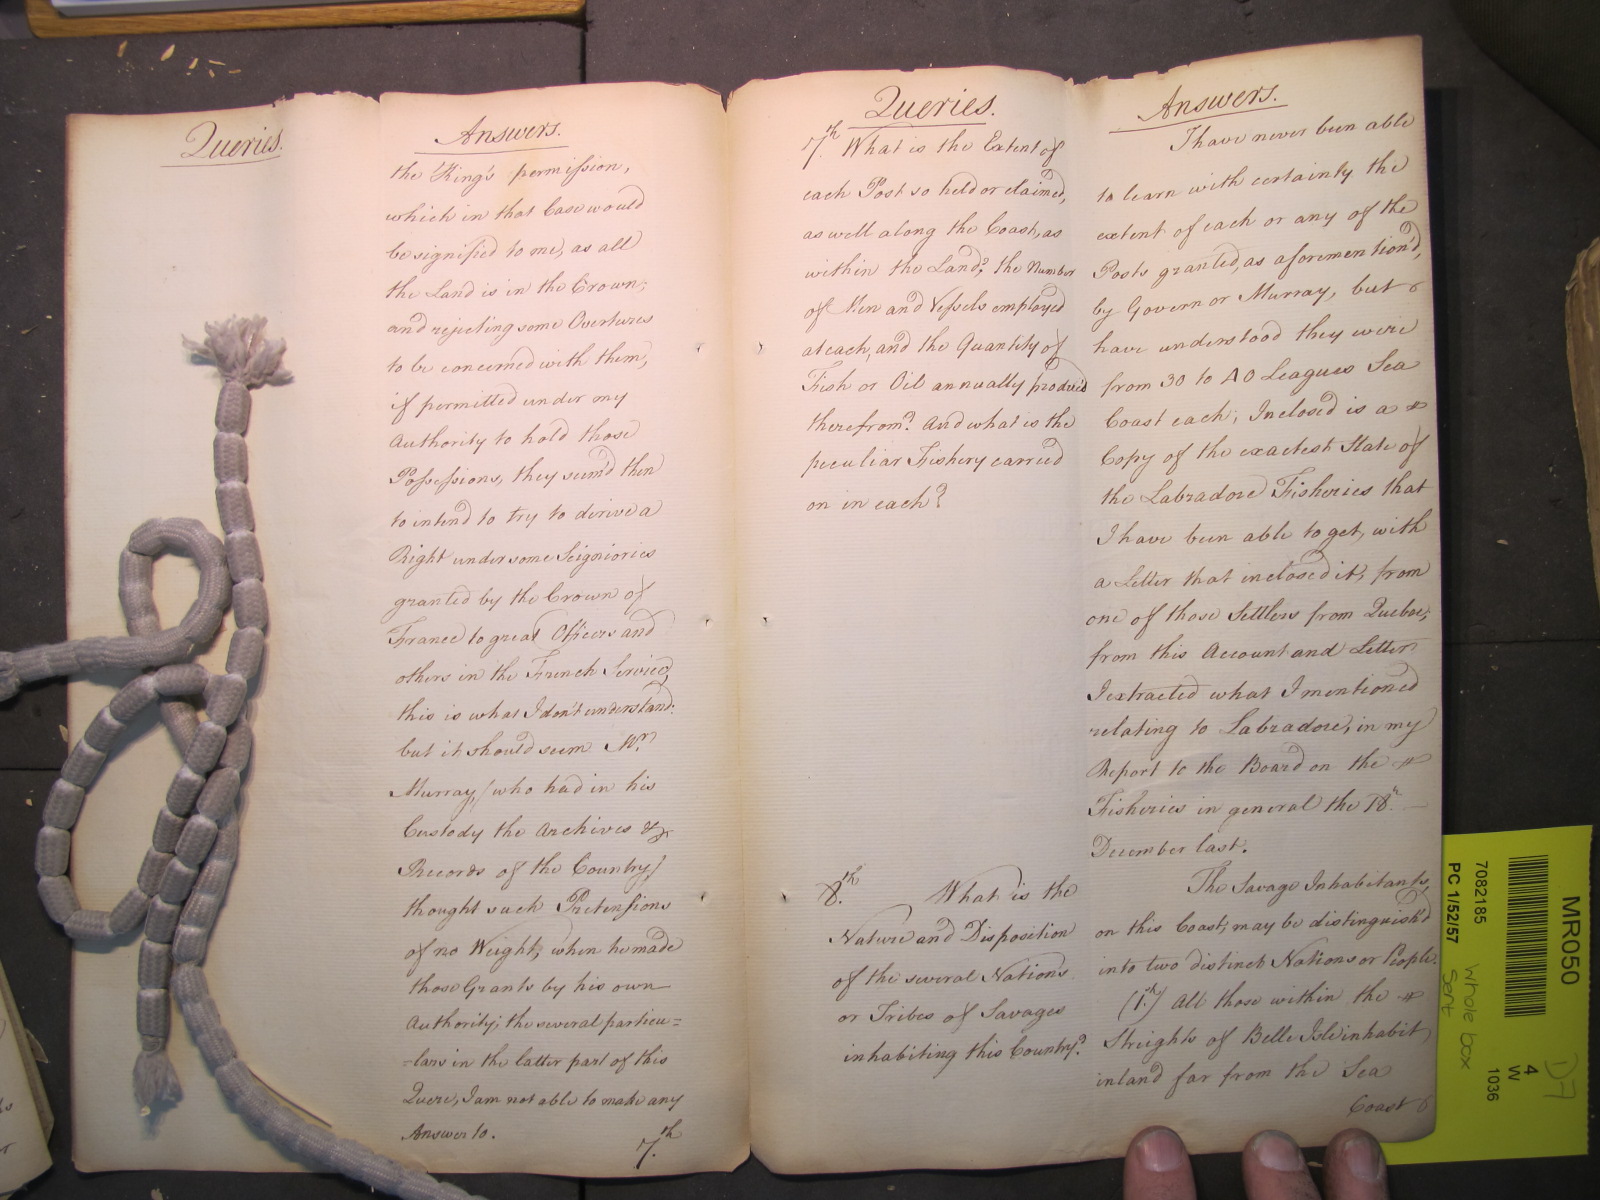 Queries.
Answers.
the King's permission,
which in that Case would
be signified to me, as all
the Land is in the Crown;
and rejecting some Overtures
to be concerned with them,
if permitted under my
Authority to hold those
Possessions, they seem'd then
to intend to try to derive a
Right under some Seigniories
granted by the Crown of
France to great Officers and
others in the French Service,
this is what I don't understand:
but it should seem Mr.
Murray, (who had in his
Custody the Archives &
Records of the Country)
thought such Pretensions
of no Weight, when he made
those Grants by his own
Authority; the several particu=
=lars in the latter part of this
Quere, I am not able to make any
Answer to.
7.th
Queries.
7.th What is the Extent of
each Post so held or claimed,
as well along the Coast, as
within the Land? the Number
of Men and Vessels employed
at each, and the Quantity of
Fish or Oil annually produced
therefrom? And what is the
peculiar Fishery carried
on in each?
8.th What is the
Nature and Disposition
of the several Nations
or Tribes of Savages
inhabiting this Country?
Answers.
I have never been able
to learn with certainty the
extent of each or any of the
Posts granted, as aforemention'd,
by Governor Murray, but
have understood they were
from 30 to 40 Leagues Sea
Coast each; Inclosed is a
Copy of the exactest State of
the Labradore Fisheries that
I have been able to get, with
a Letter that inclosed it, from
one of those Settlers from Quebec;
from this Account and Letter
I extracted what I mentioned
relating to Labradore, in my
Report to the Board on the
Fisheries in general the 18.th
December last.
The Savage Inhabitants,
on this Coast, may be distinguish'd
into two distinct Nations or People.
(1.st) All those within the
Streights of Belle Isle inhabit
inland far from the Sea
Coast
MR050
7082185
PC 1/52/57
4
W
1036
D7
Whole box
Sent